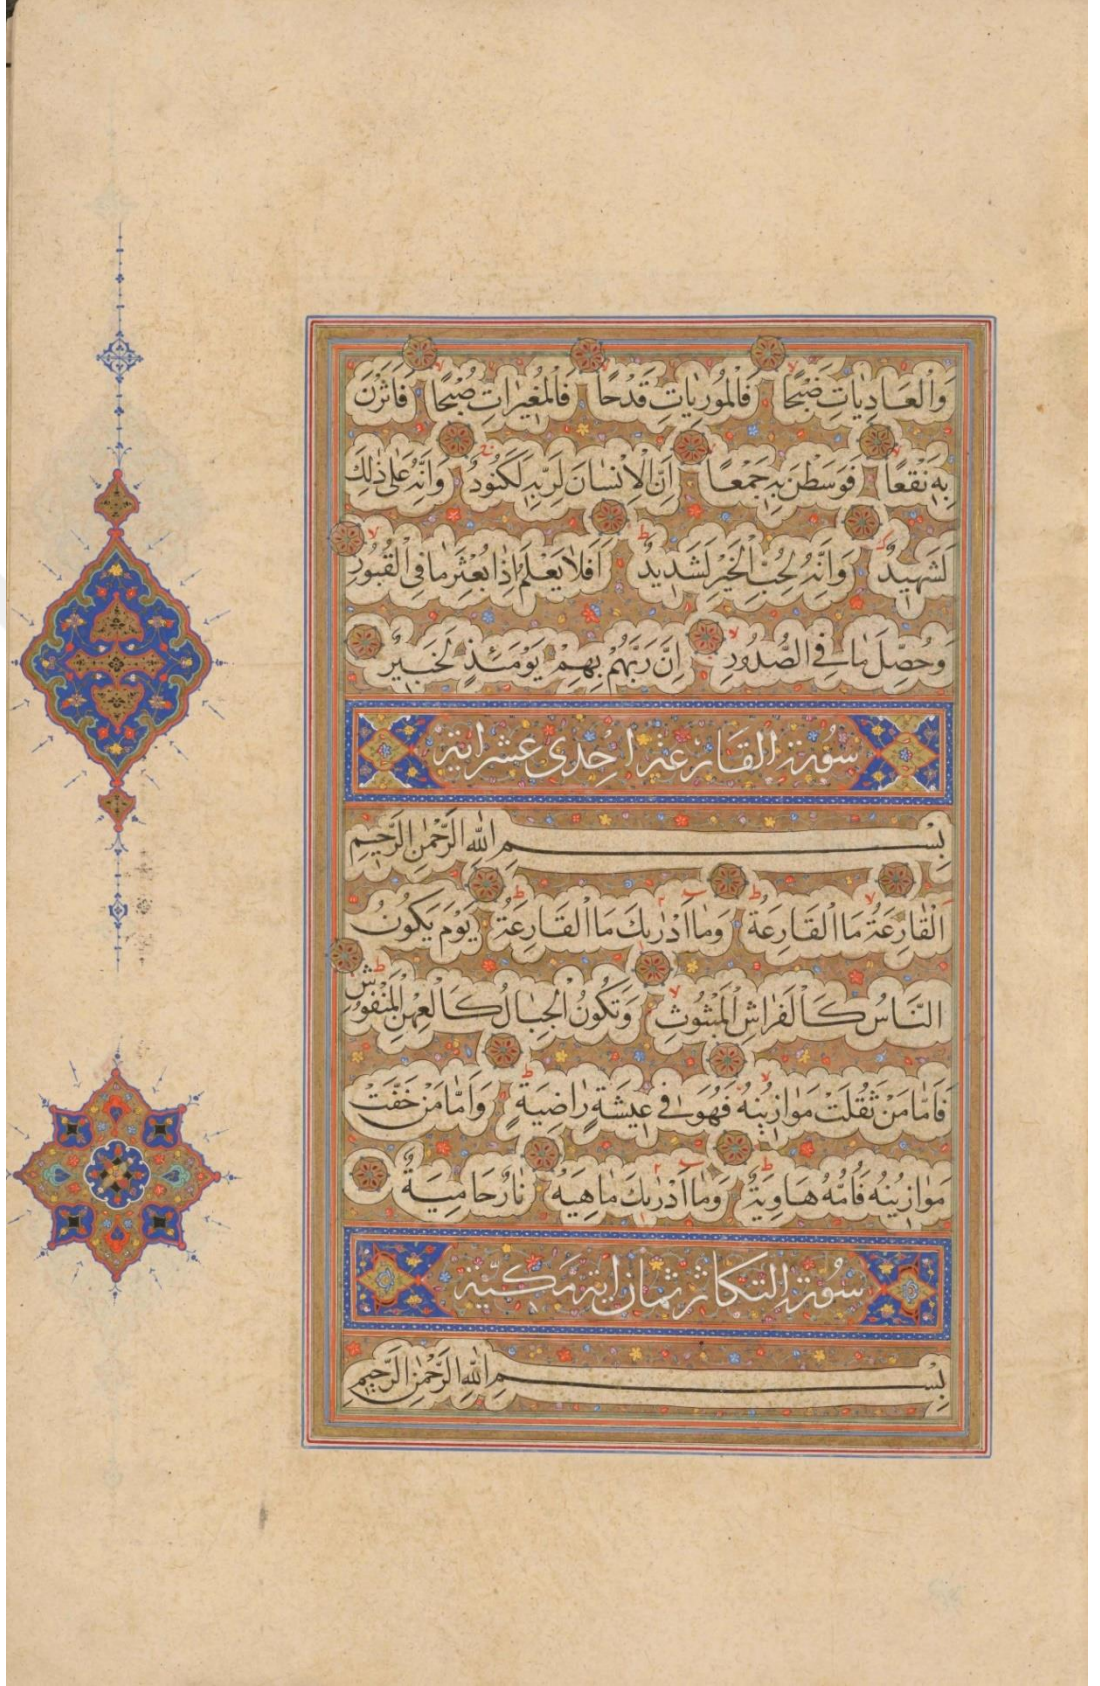 وَالْعَادِيَاتِ ضَبْحًا فَالْمُورِيَاتِ قَدْحًا فَالْمُغِيرَاتِ صُبْحًا فَاَثَرْنَ
بِهٖ نَقْعًا فَوَسَطْنَ بِهٖ جَمْعًا اِنَّ الْاِنْسَانَ لِرَبِّهٖ لَكَنُودٌ وَاِنَّهُ عَلٰى ذٰلِكَ
لَشَهِيدٌ وَاِنَّهُ لِحُبِّ الْخَيْرِ لَشَدِيدٌ اَفَلَا يَعْلَمُ اِذَا بُعْثِرَ مَا فِى الْقُبُورِ
وَحُصِّلَ مَا فِى الصُّدُورِ اِنَّ رَبَّهُمْ بِهِمْ يَوْمَئِذٍ لَخَبِيرٌ
سُورَة القَارِعَة اِحْدَى عَشَر اٰيَة
بِسْمِ اللّٰهِ الرَّحْمٰنِ الرَّحِيمِ
اَلْقَارِعَةُ مَا الْقَارِعَةُ وَمَا اَدْرٰيكَ مَا الْقَارِعَةُ يَوْمَ يَكُونُ
النَّاسُ كَالْفَرَاشِ الْمَبْثُوثِ وَتَكُونُ الْجِبَالُ كَالْعِهْنِ الْمَنْفُوشِ
فَاَمَّا مَنْ ثَقُلَتْ مَوَازِينُهُ فَهُوَ فِى عِيشَةٍ رَاضِيَةٍ وَاَمَّا مَنْ خَفَّتْ
مَوَازِينُهُ فَاُمُّهُ هَاوِيَةٌ وَمَا اَدْرٰيكَ مَاهِيَهْ نَارٌ حَامِيَةٌ
سُورَة التَكَاثُر ثَمَان اٰيَة مَكِّيَّة
بِسْمِ اللّٰهِ الرَّحْمٰنِ الرَّحِيمِ